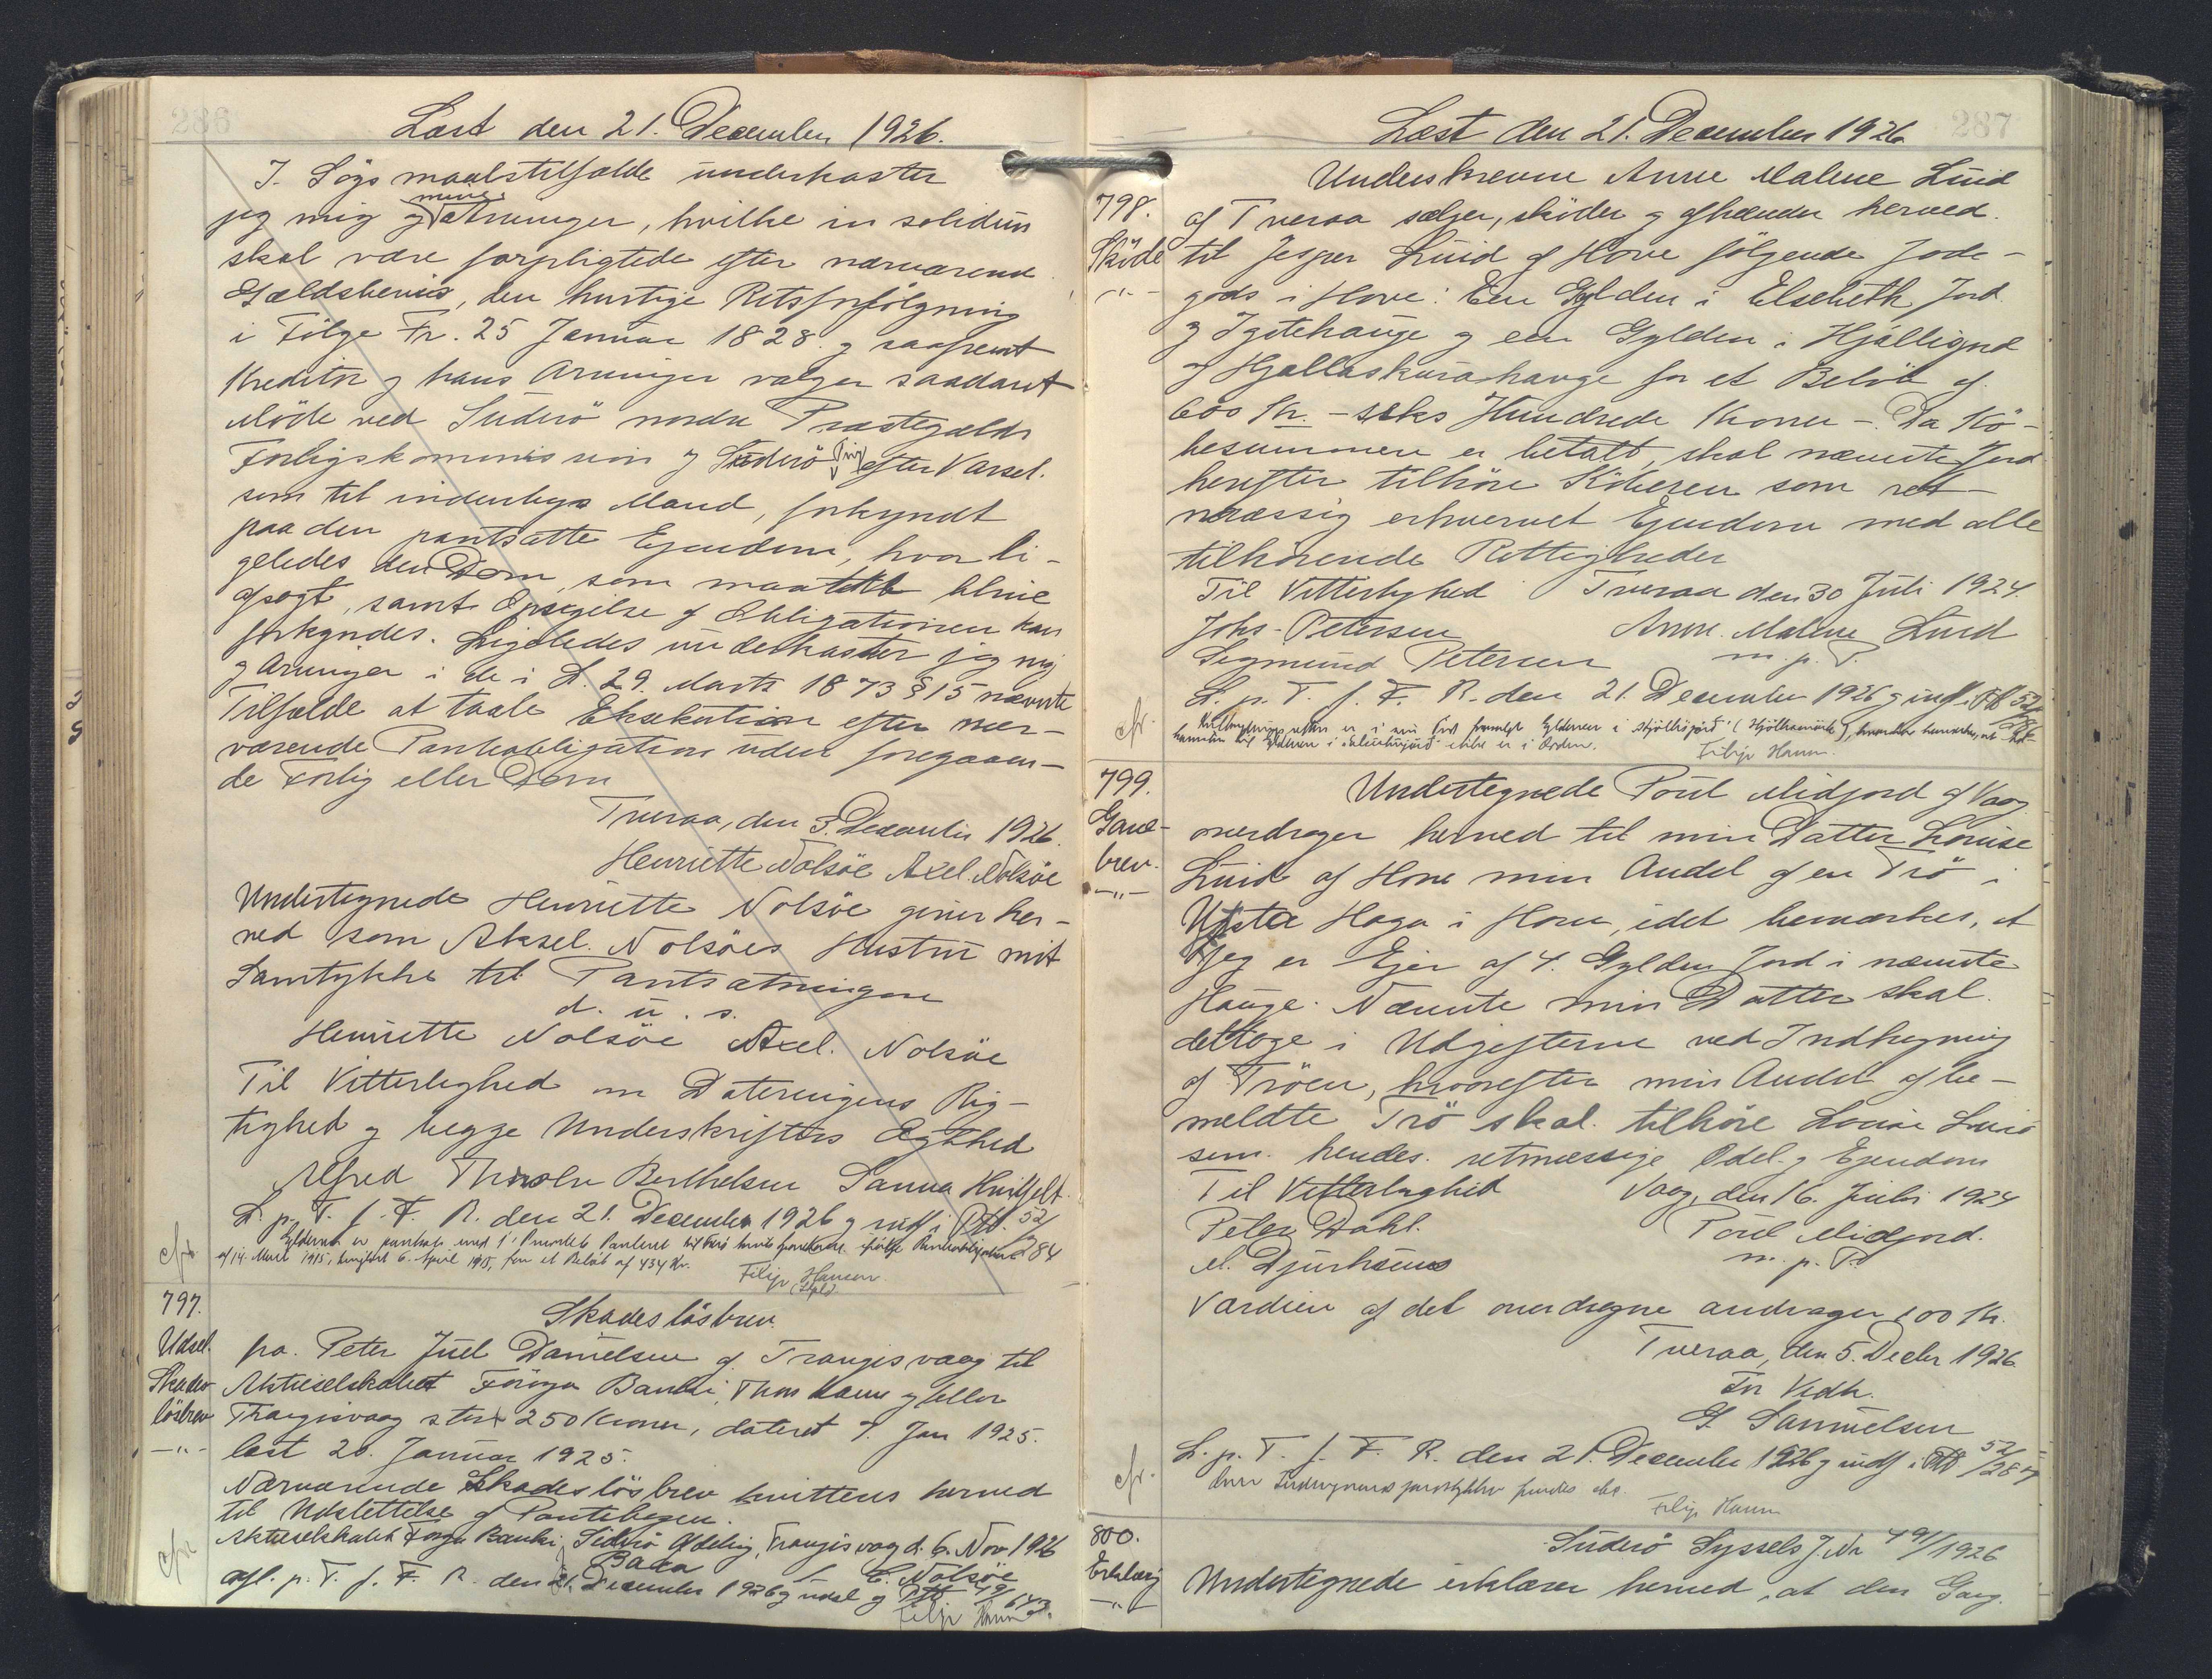 286
Læst den 21. December 1926.
I Søgsmaalstilfælde underkaster
jeg mig og mine Arvinger, hvilke in solidum
skal være forpligtede efter nærværende
Gældsbevis, den hurtige Retsforfølgning
i Følge Fr. 25 Januar 1828 og saafremt
Kreditor og hans Arvinger vælger saadant
Møde ved Suderø nordre Præstegælds
Forligskommission og Suderø Ting efter Varsel
som til indenbys Mand, forkyndt
paa den pantsatte Ejendom, hvor li-
geledes den Dom, som maatte blive
afsagt, samt Opsigelse af Obligationen kan
forkyndes. Ligeledes underkaster jeg mig
og Arvinger i de i L. 29. Marts 1873 § 15 nævnte
Tilfælde at taale Eksekution efter nær-
værende Pantobligation uden foregaaen-
de Forlig eller Dom
Tveraa, den 3. December 1926.
Henriette Nolsøe Axel Nolsøe
Undertegnede Henriette Nolsöe giver her-
ved som Aksel Nolsöes Hustru mit
Samtykke til Pantsætningen
d. u. s.
Henriette Nolsöe Axel. Nolsöe
Til Vitterlighed om Dateringens Rig-
tighed og begge Underskrifters Ægthed
Alfred Berthelsen Sanna Hvitfelt
L. p. T. f. F. R. den 21. December 1926 og indf i Ptb. 52/284
cfr. Gylden er pantsat med 1' Prioritets Panteret
af 14. Marts 1915, tinglæst 6. April 1915, for et Beløb af 434 Kr.
Filip Hansen
797.
Udsl.
Skades
lösbrev
—"—
Skadeslösbrev.
fra Peter Juel Danielsen af Trangisvaag til
Aktieselskabet Föroya Banki, Thorshavn og eller
Trangisvaag stort 250 Kroner, dateret 7. Jan 1925.
læst 20. Januar 1925.
Nærværende Skadeslösbrev kvitteres herved
til Udslettelse af Pantebogen.
Aktieselskabet Föroya Banki, Suderø Afdeling, Trangisvaag d. 6. Nov 1926
E. Nolsöe
cfr.
Afl. p. T. f. F. R. den 21. December 1926 og udsl af Ptb 49/643.
Filip Hansen
287
Læst den 21. December 1926
798.
Sköde
—"—
Underskrevne Anne Malene Luid
af Tveraa sælger, sköder og afhænder herved
til Jesper Luid af Hove fölgende Jorde-
gods i Hove: Een Gylden i Elsebeth Jord
og Igtehauge og een Gylden i Hjálligord
og Hjallaskurahauge for et Belöb af
600 Kr. – seks Hundrede Kroner –. Da Kö-
besummen er betalt, skal nævnte Jord
herefter tilhöre Köberen som ret-
mæssig erhvervet Ejendom med alle
tilhörende Rettigheder
Til Vitterlighed Tveraa den 30 Juli 1924.
Johs. Petersen Anne. Malene Luid
Sigmund Petersen m. p. P.
L. p. T. f. F. R. den 21. December 1926 og indf i Ptb 52/286
cfr.
Filip Hansen.
799.
Gave-
brev.
—"—
Undertegnede Poul Midjord af Vaag
overdrager herved til min Datter Louise
Luid af Hove min Andel af en Trö i
Ytsta Haga i Hove, idet bemærkes, at
jeg er Ejer af 4. Gylden Jord i nævnte
Hauge. Nævnte min Datter skal
deltage i Udgifterne ved Indhegning
af Tröen, hvorefter min Andel af be-
meldte Trö skal tilhöre Louise Luid
som hendes retmæssige Odel og Ejendom
Til Vitterlighed Vaag, den 16. Juli 1924
Peter Dahl. Poul Midjord.
M. Djurhuus m. p. P.
Værdien af det overdragne andrager 100 Kr.
Tveraa, den 5. Decbr 1926
Tr Vedh.
G. Samuelsen
L. p. T. f. F. R. den 21. December 1926 og indf i Ptb 52/287
cfr.
Filip Hansen
800.
Erklæring
—"—
Suderø Syssels J. No 491/1926
Undertegnede erklærer herved, at den Gang